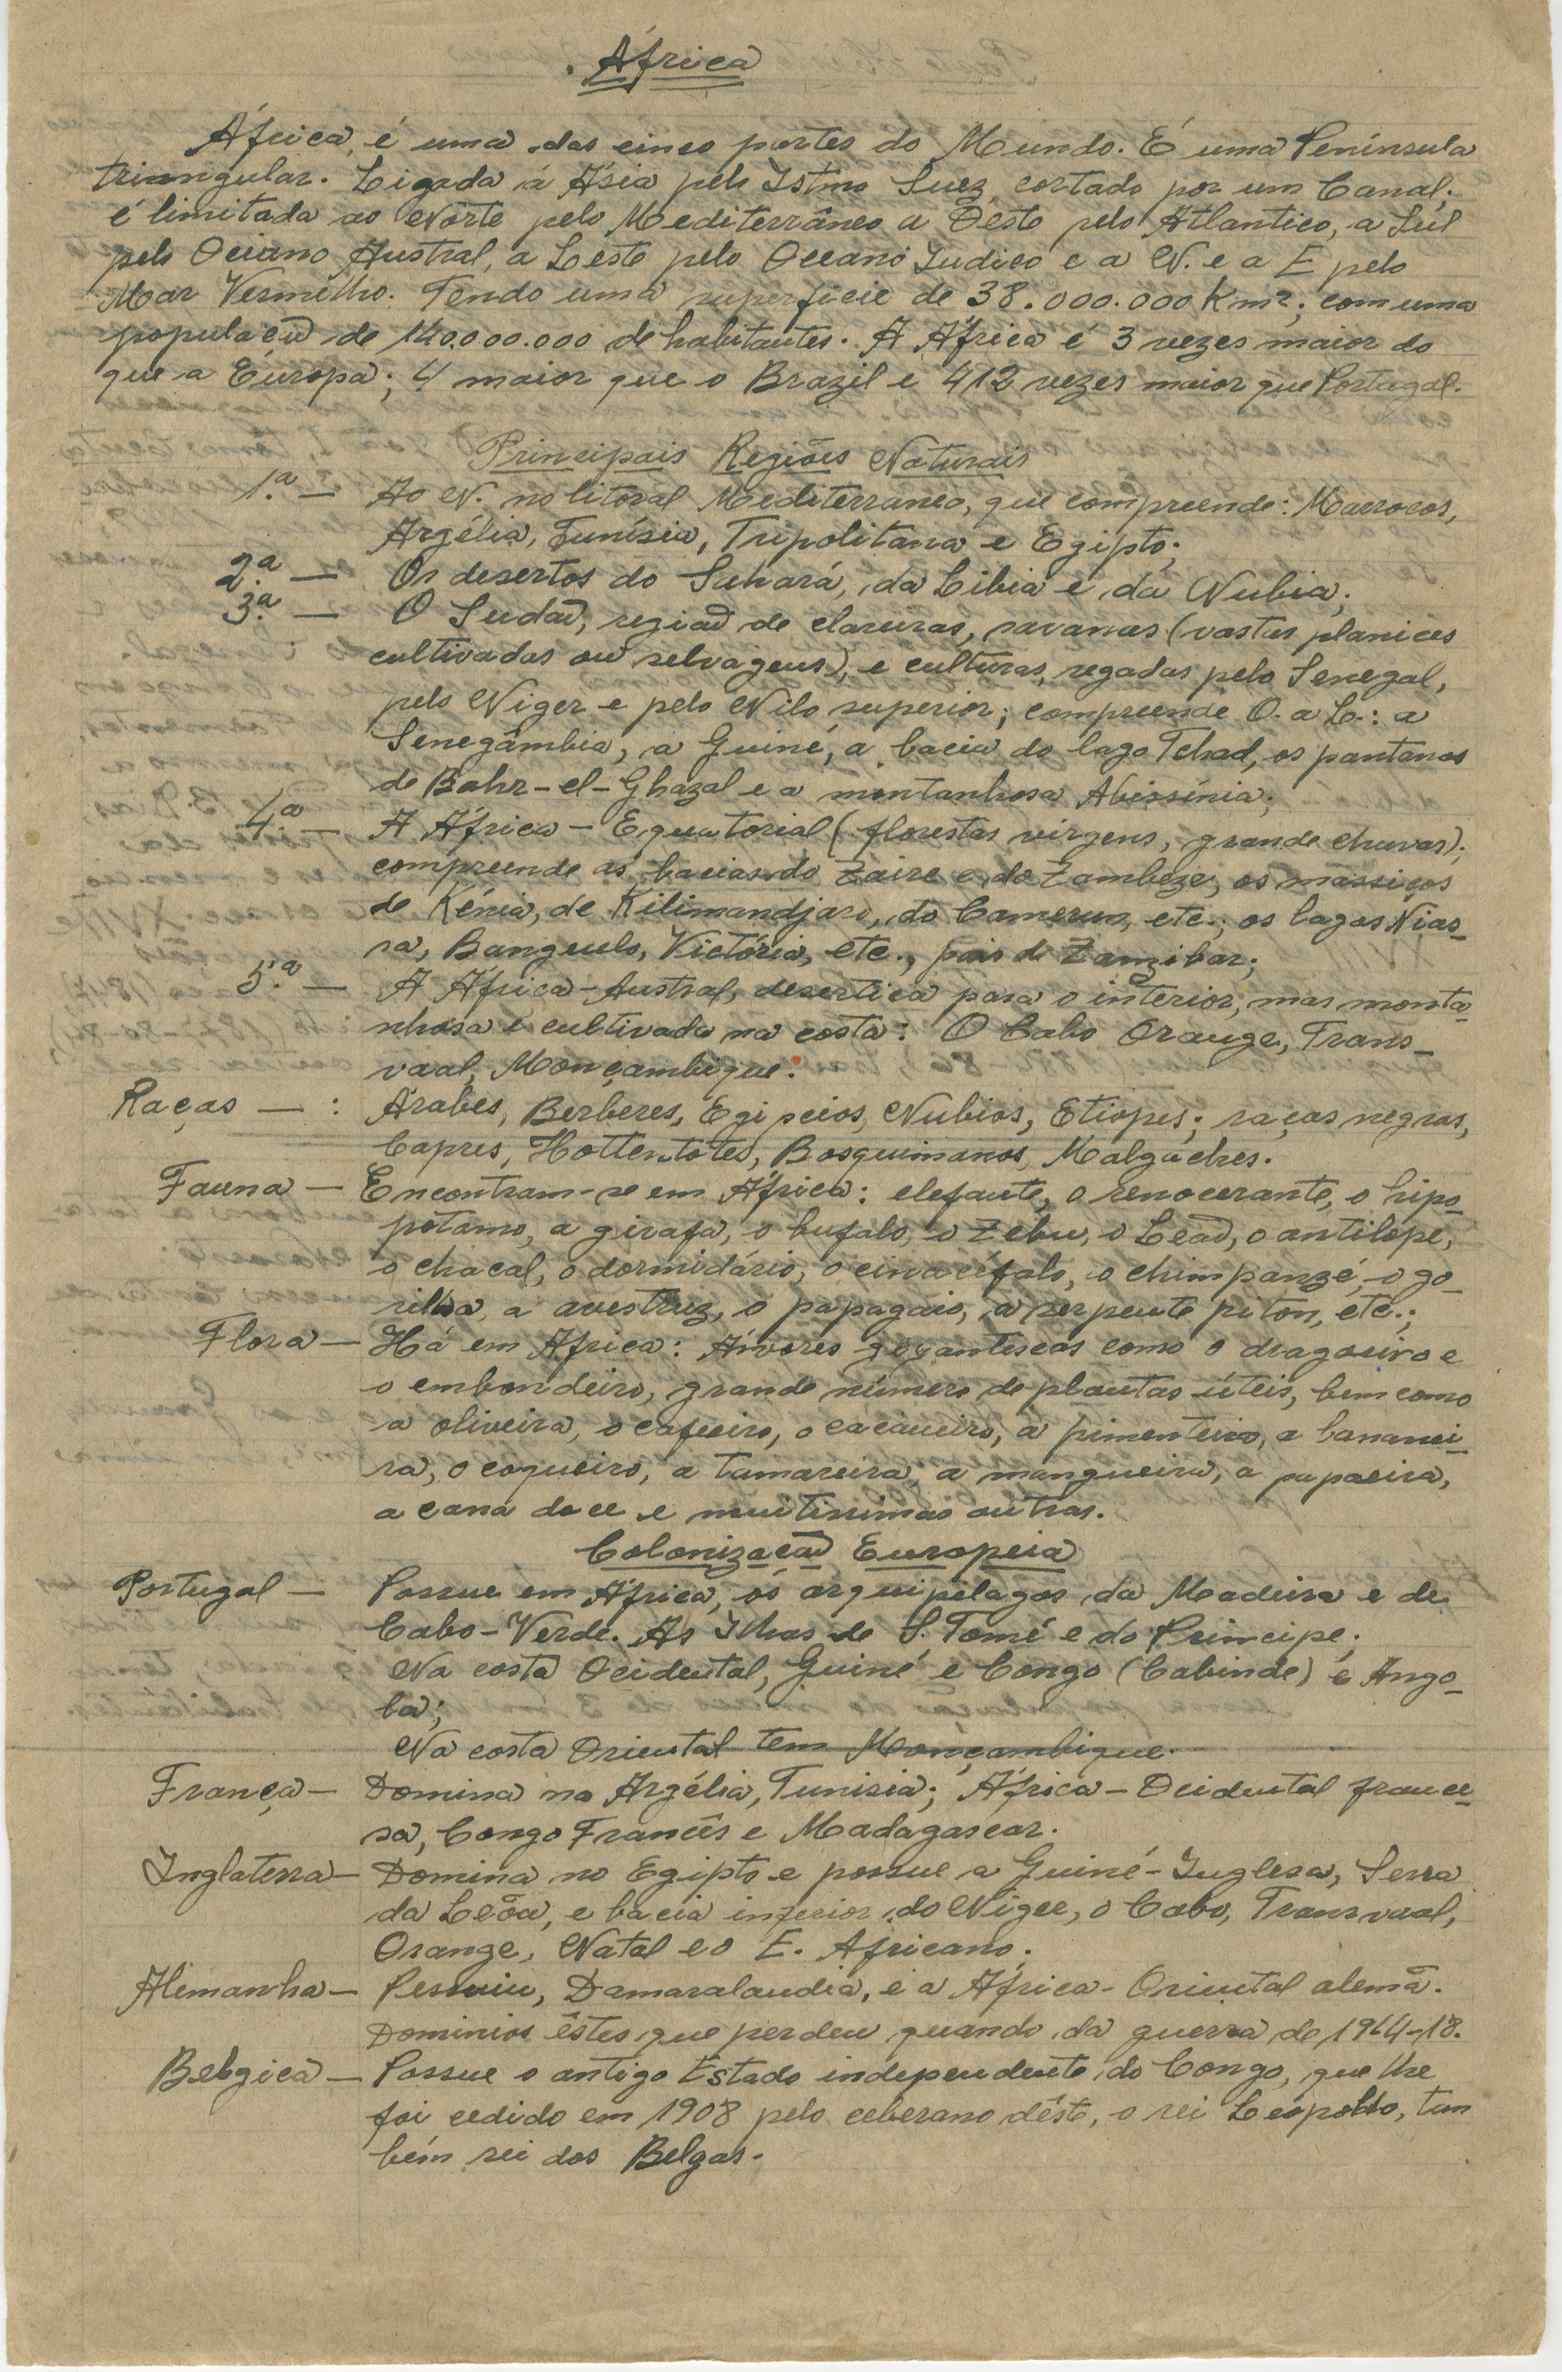 África
África, é uma das cinco partes do Mundo. É uma Península
triangular. Ligada á Ásia pelo Istmo Suez, cortado por um Canal;
é limitada ao Norte pelo Mediterrâneo a Oeste pelo Atlantico, a Sul
pelo Ociano Austral, a Leste pelo Oceano Indico e a N. e a E pelo
Mar Vermelho. Tendo uma superficie de 38.000.000 Km²; com uma
populacão de 140.000.000 de habitantes. A África é 3 vezes maior do
que a Európa; 4 maior que o Brazil e 412 vezes maior que Portugal.
Principais Regiões Naturais
1.ª — Ao N. no litoral Mediterraneo, que compreende: Marrocos,
Argélia, Tunísia, Tripolitana e Egipto;
2.ª — Os desertos do Sahará, da Libia e da Nubia;
3.ª — O Sudão, região de clareiras, savanas (vastas planices
cultivadas ou selvagens), e culturas, regadas pelo Senegal,
pelo Niger e pelo Nilo superior; compreende O. a L.: a
Senegâmbia, a Guiné, a bacia do lago Tchad, os pantanos
de Bahr-el-Ghazal e a montanhosa Abissínia;
4.ª — A África-Equatorial (florestas virgens, grande chuvas);
compreende as bacias do Zaire e do Zambeze, os massiços
de Kénia, de Kilimandjaro, do Camerun, etc.; os lagos Nias-
sa, Banguelo, Victória, etc., pais de Zanzibar;
5.ª — A África-Austral, desertica para o interior, mas monta-
nhosa e cultivada na costa: O Cabo Orange, Trans-
vaal, Monçambique.
Raças — : Árabes, Berberes, Egipcios, Nubios, Etiopes; raças negras,
Capres, Hottentotes, Bosquimanos, Malgaches.
Fauna — Encontram-se em África: elefante, o renocerante, o hipo-
potamo, a girafa, o bufalo, o Zebu, o Leão, o antilope,
o chacal, o dormidário, o cinocéfalo, o chimpanzé, o go-
rilha, a avestruz, o papagaio, a serpente piton, etc.;
Flora — Há em África: Árvores gigantescas como o dragoeiro e
o embondeiro, grande número de plantas úteis, bem como
a oliveira, o cafeeiro, o cacaueiro, a pimenteira, a bananei-
ra, o coqueiro, a tamareira, a mangueira, a papaeira,
a cana doce e muitissimas outras.
Colonização Europeia
Portugal — Possue em África, os arquipélagos da Madeira e de
Cabo-Verde. As Ilhas de S. Tomé e do Principe;
Na costa Ocidental, Guiné e Congo (Cabinde) e Ango-
la;
Na costa Oriental tem Monçambique.
França — Domina na Argélia, Tunisia; África-Ocidental france-
sa, Congo Francês e Madagascar.
Inglaterra — Domina no Egipto e possue a Guiné-Inglesa, Serra
da Leôa, e bacia inferior do Niger, o Cabo, Transvaal,
Orange, Natal e o E. Africano;
Alemanha — Possuiu, Damaralandia, e a África-Oriental alemã.
Dominios êstes que perdeu quando da guerra de 1914-18.
Belgica — Possue o antigo Estado independente do Congo, que lhe
foi cedido em 1908 pelo ceberano dêste, o rei Leopoldo, tan
bém rei dos Belgas.